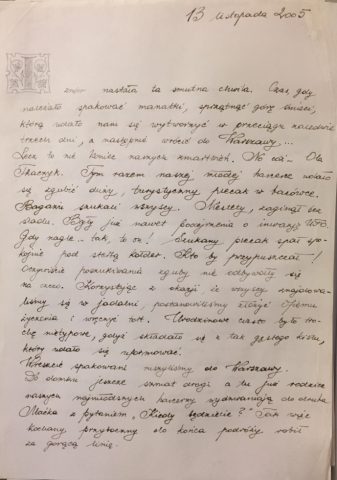 13 listopada 2005
znów nastała ta smutna chwila. Czas, gdy
należało spakować manatki, sprzątnąć górę śmieci,
którą udało nam się wytworzyć w przeciągu zaledwie
trzech dni, a następnie wrócić do Warszawy...
Lecz to nie koniec naszych zmartwień. No cóż - Ola
Tkaczyk. Tym razem naszej młodej harcerce udało
się zgubić duży, turystyczny plecak w harcówce.
Bagażu szukali wszyscy. Niestety, zaginął bez
śladu. Były już nawet podejrzenia o inwazję UFO.
Gdy nagle... tak, to on! Szukany plecak spał spo-
kojnie pod stertą kołder. Kto by przypuszczał -!
Oczywiście poszukiwania zguby nie odbywały się
na czczo. Korzystając z okazji że wszyscy znajdowa-
liśmy się w jadalni, postanowiliśmy złożyć
życzenia i wręczyć tort. Urodzinowe ciasto było tro-
chę nietypowe, gdyż składało się z tak gęstego kisielu,
który udało się uformować.
Wreszcie spakowani ruszyliśmy do Warszawy.
Do domów jeszcze szmat drogi a tu już rodzice
naszych najmłodszych harcerzy wydzwaniają do druha
Maćka z pytaniem „Kiedy będziecie?" Tak więc
kochany przyboczny do końca podróży robił
za gorącą linię.